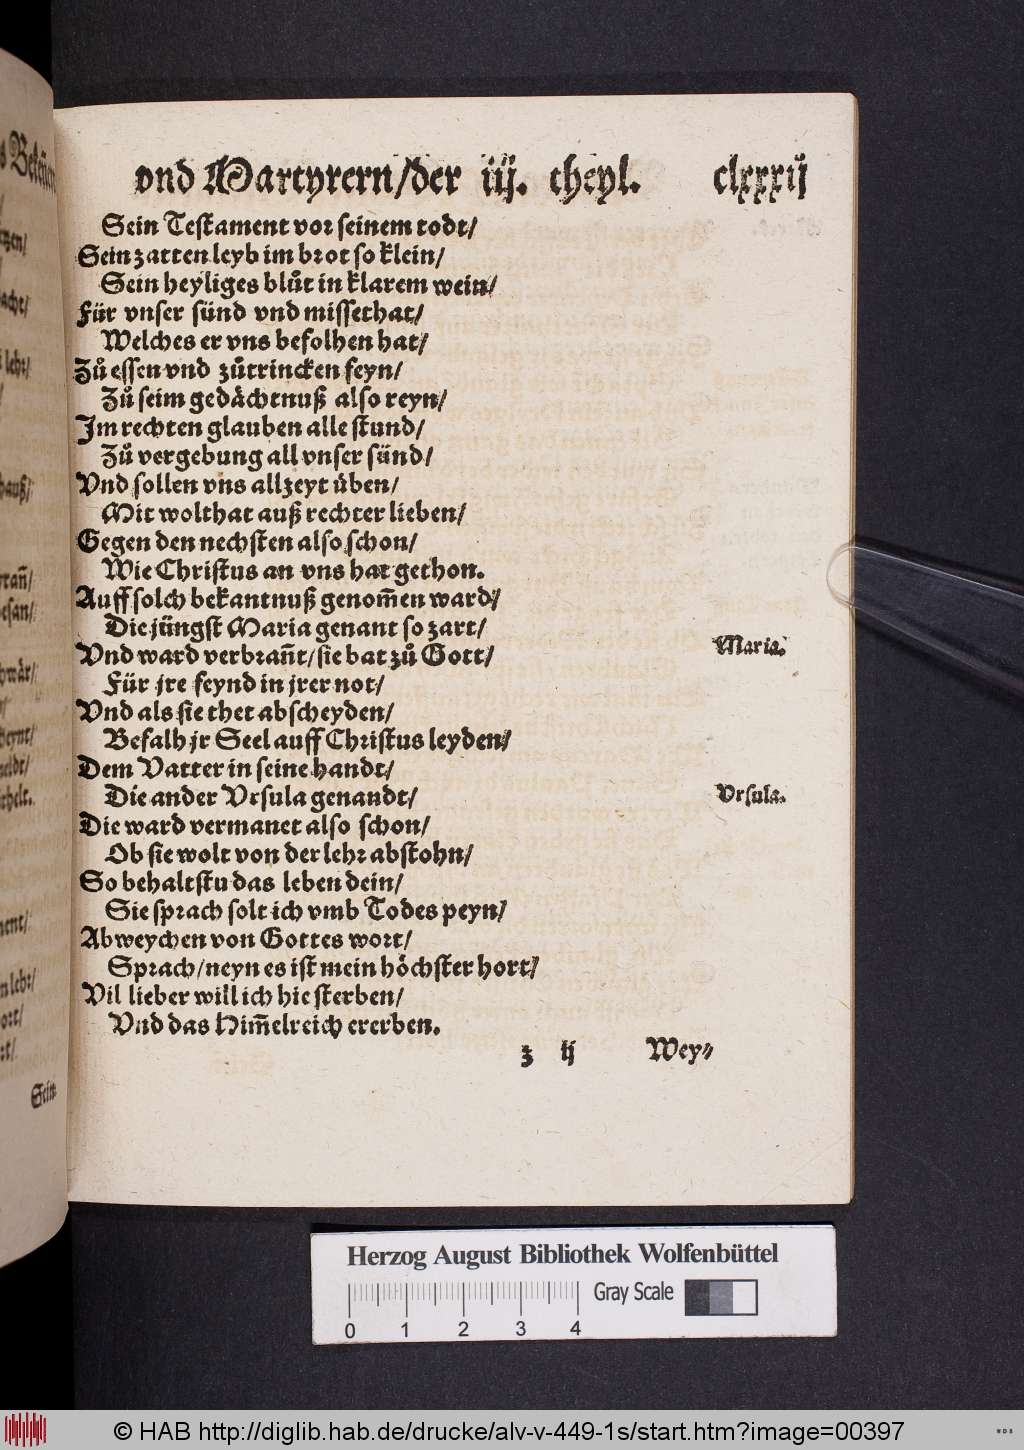 vnd Martyrern/der iij. theyl. clxxxij
Sein Testament vor seinem todt/
Sein zarten leyb im brot so klein/
Sein heyliges blůt in klarem wein/
Für vnser sünd vnd missethat/
Welches er vns befolhen hat/
Zů essen vnd zůtrincken feyn/
Zů seim gedächtnuß also reyn/
Im rechten glauben alle stund/
Zů vergebung all vnser sünd/
Vnd sollen vns allzeyt üben/
Mit wolthat auß rechter lieben/
Gegen den nechsten also schon/
Wie Christus an vns hat gethon.
Auff solch bekantnuß genom̃en ward/
Die jüngst Maria genant so zart/
Vnd ward verbrañt/sie bat zů Gott/
Maria.
Für jre feynd in jrer not/
Vnd als sie thet abscheyden/
Befalh jr Seel auff Christus leyden/
Dem Vatter in seine handt/
Die ander Vrsula genandt/
Vrsula.
Die ward vermanet also schon/
Ob sie wolt von der lehr abstohn/
So behaltstu das leben dein/
Sie sprach solt ich vmb Todes peyn/
Abweychen von Gottes wort/
Sprach/neyn es ist mein höchster hort/
Vil lieber will ich hie sterben/
Vnd das Him̃elreich ererben.
z ij Wey⸗
Sein
Herzog August Bibliothek Wolfenbüttel
Gray Scale
0 1 2 3 4
© HAB http://diglib.hab.de/drucke/alv-v-449-1s/start.htm?image=00397